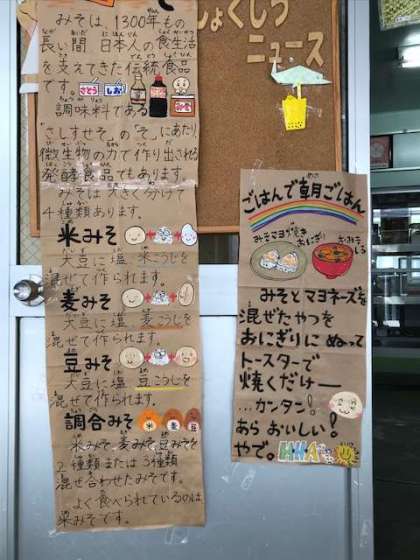 しょくしつ
ニュース
みそは、1300年もの
長い間 日本人の食生活
を支えてきた伝統食品
です。
さとう しお みそ
調味料である
"さしすせそ"の「そ」にあたり
微生物の力で作り出される
発酵食品でもあります。
みそは大きく分けて
4種類あります。
米みそ
大豆に塩 米こうじを
混ぜて作られます。
麦みそ
大豆に塩 麦こうじを
混ぜて作られます。
豆みそ
大豆に塩 豆こうじを
混ぜて作られます。
調合みそ
米 麦 豆
米みそ、麦みそ、豆みそを
2種類または3種類
混ぜ合わせたみそです。
よく食べられているのは、
米みそです。
ごはんで朝ごはん
みそマヨ焼き
おにぎり
おみそしる
みそとマヨネーズを
混ぜたやつを
おにぎりにぬって
トースターで
焼くだけー
…カンタン!
あらおいしい!
やで。